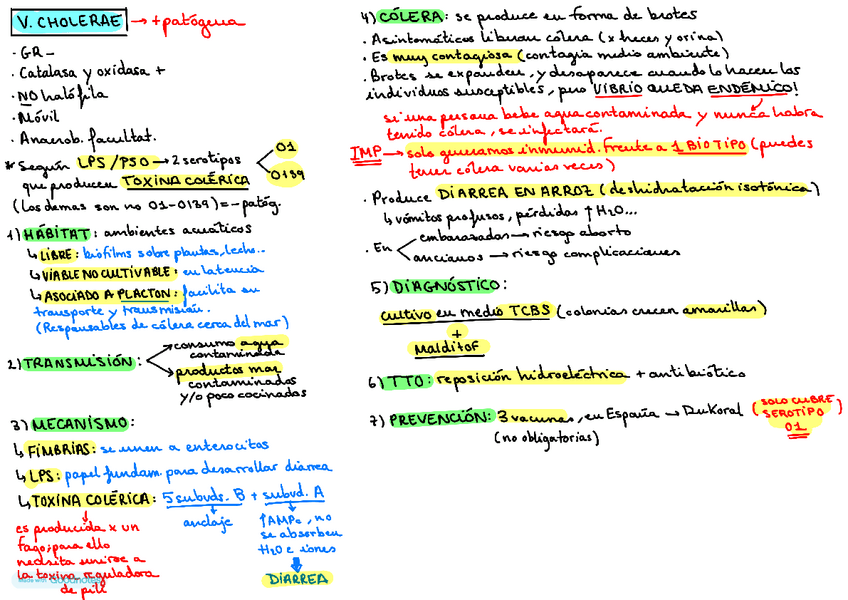 V. CHOLERAE → + patógena
· GR -
· Catalasa y oxidasa +
· NO halófila
· Móvil
· Anaerob. facultat.
* Según LPS / PSO → 2 serotipos < 01
0139
que producen TOXINA COLÉRICA
(los demas son no 01-0139) = - patóg.
1) HÁBITAT: ambientes acuáticos
↳ LIBRE: biofilms sobre plantas, lecho...
↳ VIABLE NO CULTIVABLE: en latencia
↳ ASOCIADO A PLACTON: facilita su
transporte y transmisión.
(Responsables de cólera cerca del mar)
2) TRANSMISIÓN: → consumo agua
contaminada
→ productos mar
contaminados
y/o poco cocinados
3) MECANISMO:
↳ FIMBRIAS: se unen a enterocitos
↳ LPS: papel fundam. para desarrollar diarrea
↳ TOXINA COLÉRICA: 5 subuds. B + subud. A
↓
es producida x un
fago; para ello
necesita unirse a
la toxina reguladora
de pili
↓
anclaje
↓
↑AMPc, no
se absorben
H2O e iones
↓
DIARREA
Made with Goodnotes
4) CÓLERA: se produce en forma de brotes
· Asintomáticos liberan cólera (x heces y orina)
· Es muy contagiosa (contagia medio ambiente)
· Brotes se expanden, y desaparece cuando lo hacen los
individuos susceptibles, pero VIBRIO QUEDA ENDÉMICO!
si una persona bebe agua contaminada y nunca habra
tenido cólera, se infectará.
IMP → solo generamos inmunid. frente a 1 BIOTIPO (puedes
tener cólera varias veces)
· Produce DIARREA EN ARROZ (deshidratación isotónica)
↳ vómitos profusos, pérdidas ↑ H2O...
· En < embarazadas → riesgo aborto
ancianos → riesgo complicaciones
5) DIAGNÓSTICO:
cultivo en medio TCBS (colonias crecen amarillas)
+
Malditof
6) TTO: reposición hidroeléctrica + antibiótico
7) PREVENCIÓN: 3 vacunas, en España → Dukoral (SOLO CUBRE
SEROTIPO
01)
(no obligatorias)